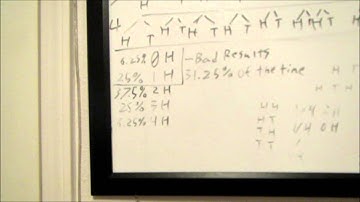 4 H T H T H T H T H T H T
6.25% 0 H -Bad Results
25% 1 H 31.25% of the time
37.5% 2 H
25% 3 H
6.25% 4 H
H T
H T H
H H 1/4 2 H
H T
T H 1/4 0 H
T T